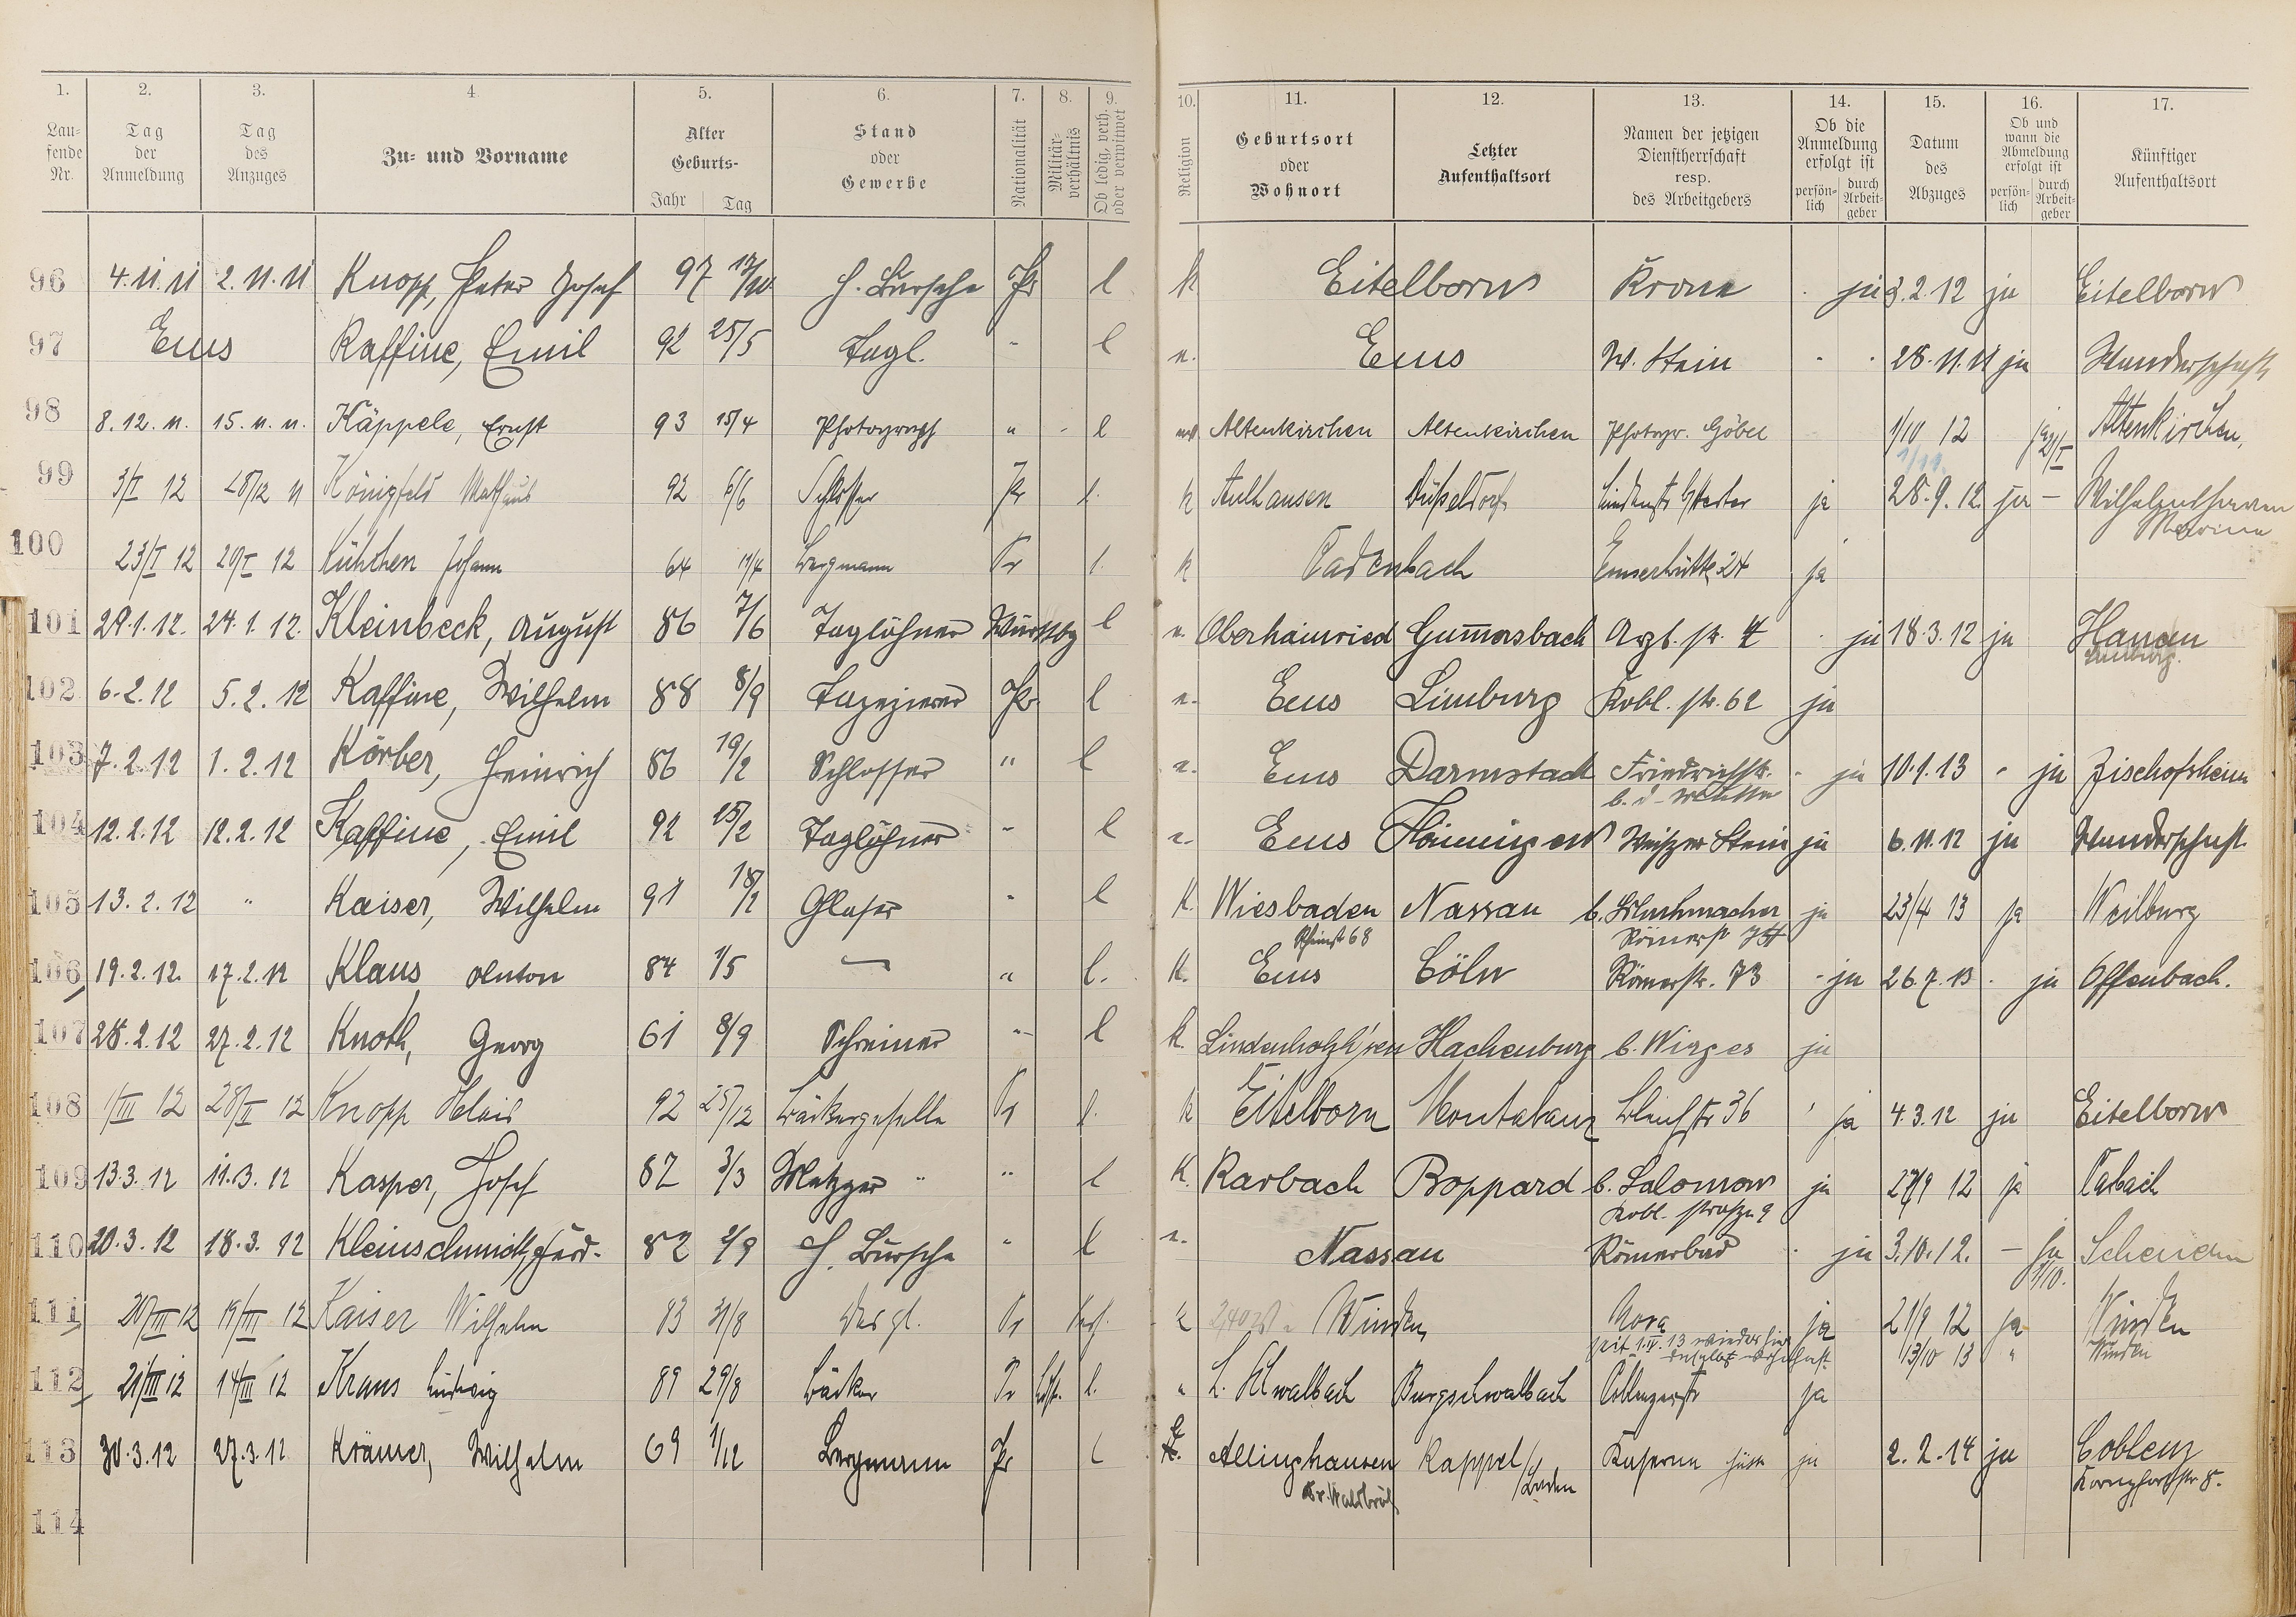 1. 2. 3. 4. 5. 6. 7. 8. 9. 10. 11. 12. 13. 14. 15. 16. 17.
Lau-fende Nr. Tag der Anmeldung Tag des Anzuges Zu- und Vorname Alter Geburts- Jahr Tag Stand oder Gewerbe Nationalität Militär-verhältnis Ob ledig, verh. oder verwitwet Religion Geburtsort oder Wohnort Letzter Aufenthaltsort Namen der jetzigen Dienstherrschaft resp. des Arbeitgebers Ob die Anmeldung erfolgt ist persön-lich durch Arbeit-geber Datum des Abzuges Ob und wann die Abmeldung erfolgt ist persön-lich durch Arbeit-geber Künftiger Aufenthaltsort
96 4.11.11 2.11.11 Knopp, Peter Josef 97 17/10 H. Bursche Pr l k Eitelborn Krone ja 3.2.12 ja Eitelborn
97 Ems Kaffine, Emil 92 25/5 Tagl. " l e. Ems W. Stein 28.11.11 ja Wanderschaft
98 8.12.11. 15.11.11. Käppele, Ernst 93 15/4 Photograph " - l Altenkirchen Altenkirchen Photogr. Göbel 1/10 12 1/11. ja Altenkirchen,
99 3/I 12 28/12 11 Königfeld Mathäus 92 6/6 Schlosser Pr l. k Aulhausen Düsseldorf ja 28.9.12. ja – Wilhelmshaven Marine
100 23/I 12 20/I 12 Johann 64 11/4 Bergmann Pr l. k Cadenbach Emserhütte 24 ja
101 29.1.12. 24.1.12. Kleinbeck, August 86 7/6 Taglöhner Württbg l e. Oberhainried Gum̄ersbach Arzb. str. 4 ja 18.3.12 ja Hanau
102 6.2.12 5.2.12 Kaffine, Wilhelm 88 8/9 Tapezierer Pr. l e. Ems Limburg Kobl. str. 62 ja Limburg.
103 7.2.12 1.2.12 Körber, Heinrich 86 19/2 Schlosser " l e. Ems Darmstadt Friedrichstr. - ja 10.1.13 - ja Bischofsheim
b. d.
104 12.2.12 12.2.12 Kaffine, Emil 92 25/2 Taglöhner " l e. Ems Hönningen Weißer Stein ja 6.11.12 ja Wanderschaft
105 13.2.12 " Kaiser, Wilhelm 91 18/2 Glaser " l K. Wiesbaden Nassau b. Schuhmacher ja 23/4 13 ja Weilburg
Rheinstr 68 Römerstr
106 19.2.12. 17.2.12 Klaus Anton 84 1/5 – " l. K. Ems Cöln Römerstr. 73 - ja 26.7.13 ja Offenbach.
107 28.2.12 27.2.12 Knoth, Georg 61 8/9 Schreiner " l k. Hachenburg b. Wirges ja
108 1/III 12 28/II 12 Knopp Alois 92 25/12 Bäckergeselle Pr l. k Eitelborn Montabaur Bleichstr 36 ja 4.3.12 ja Eitelborn
109 13.3.12 11.3.12 Kasper, Josef 87 3/3 Metzger " l K. Karbach Boppard b. Salomon ja 27/9 12 ja
Kobl. straße 9
110 20.3.12 18.3.12 Kleinschmidt, Ferd. 82 2/9 H. Bursche " l e. Nassau Römerbad ja 3.10.12. – ja Scheuern
1/10.
111 20/III 12 19/III 12 Kaiser Wilhelm 83 31/8 Pr k Winden, ja 21/9 12 ja Winden
seit 1.IV.13 wieder hier 13/10 13 " Winden
112 21/III 12 14/III 12 Kraus Ludwig 89 29/8 Bäcker Pr l. " L. Schwalbach Burgschwalbach Coblenzerstr ja
113 30.3.12 27.3.12 Krämer, Wilhelm 69 1/12 Bergmann Pr l k. Allinghausen Kappel / Baden Kaserne ja 2.2.14 ja Coblenz
Kr. Waldbröl
114